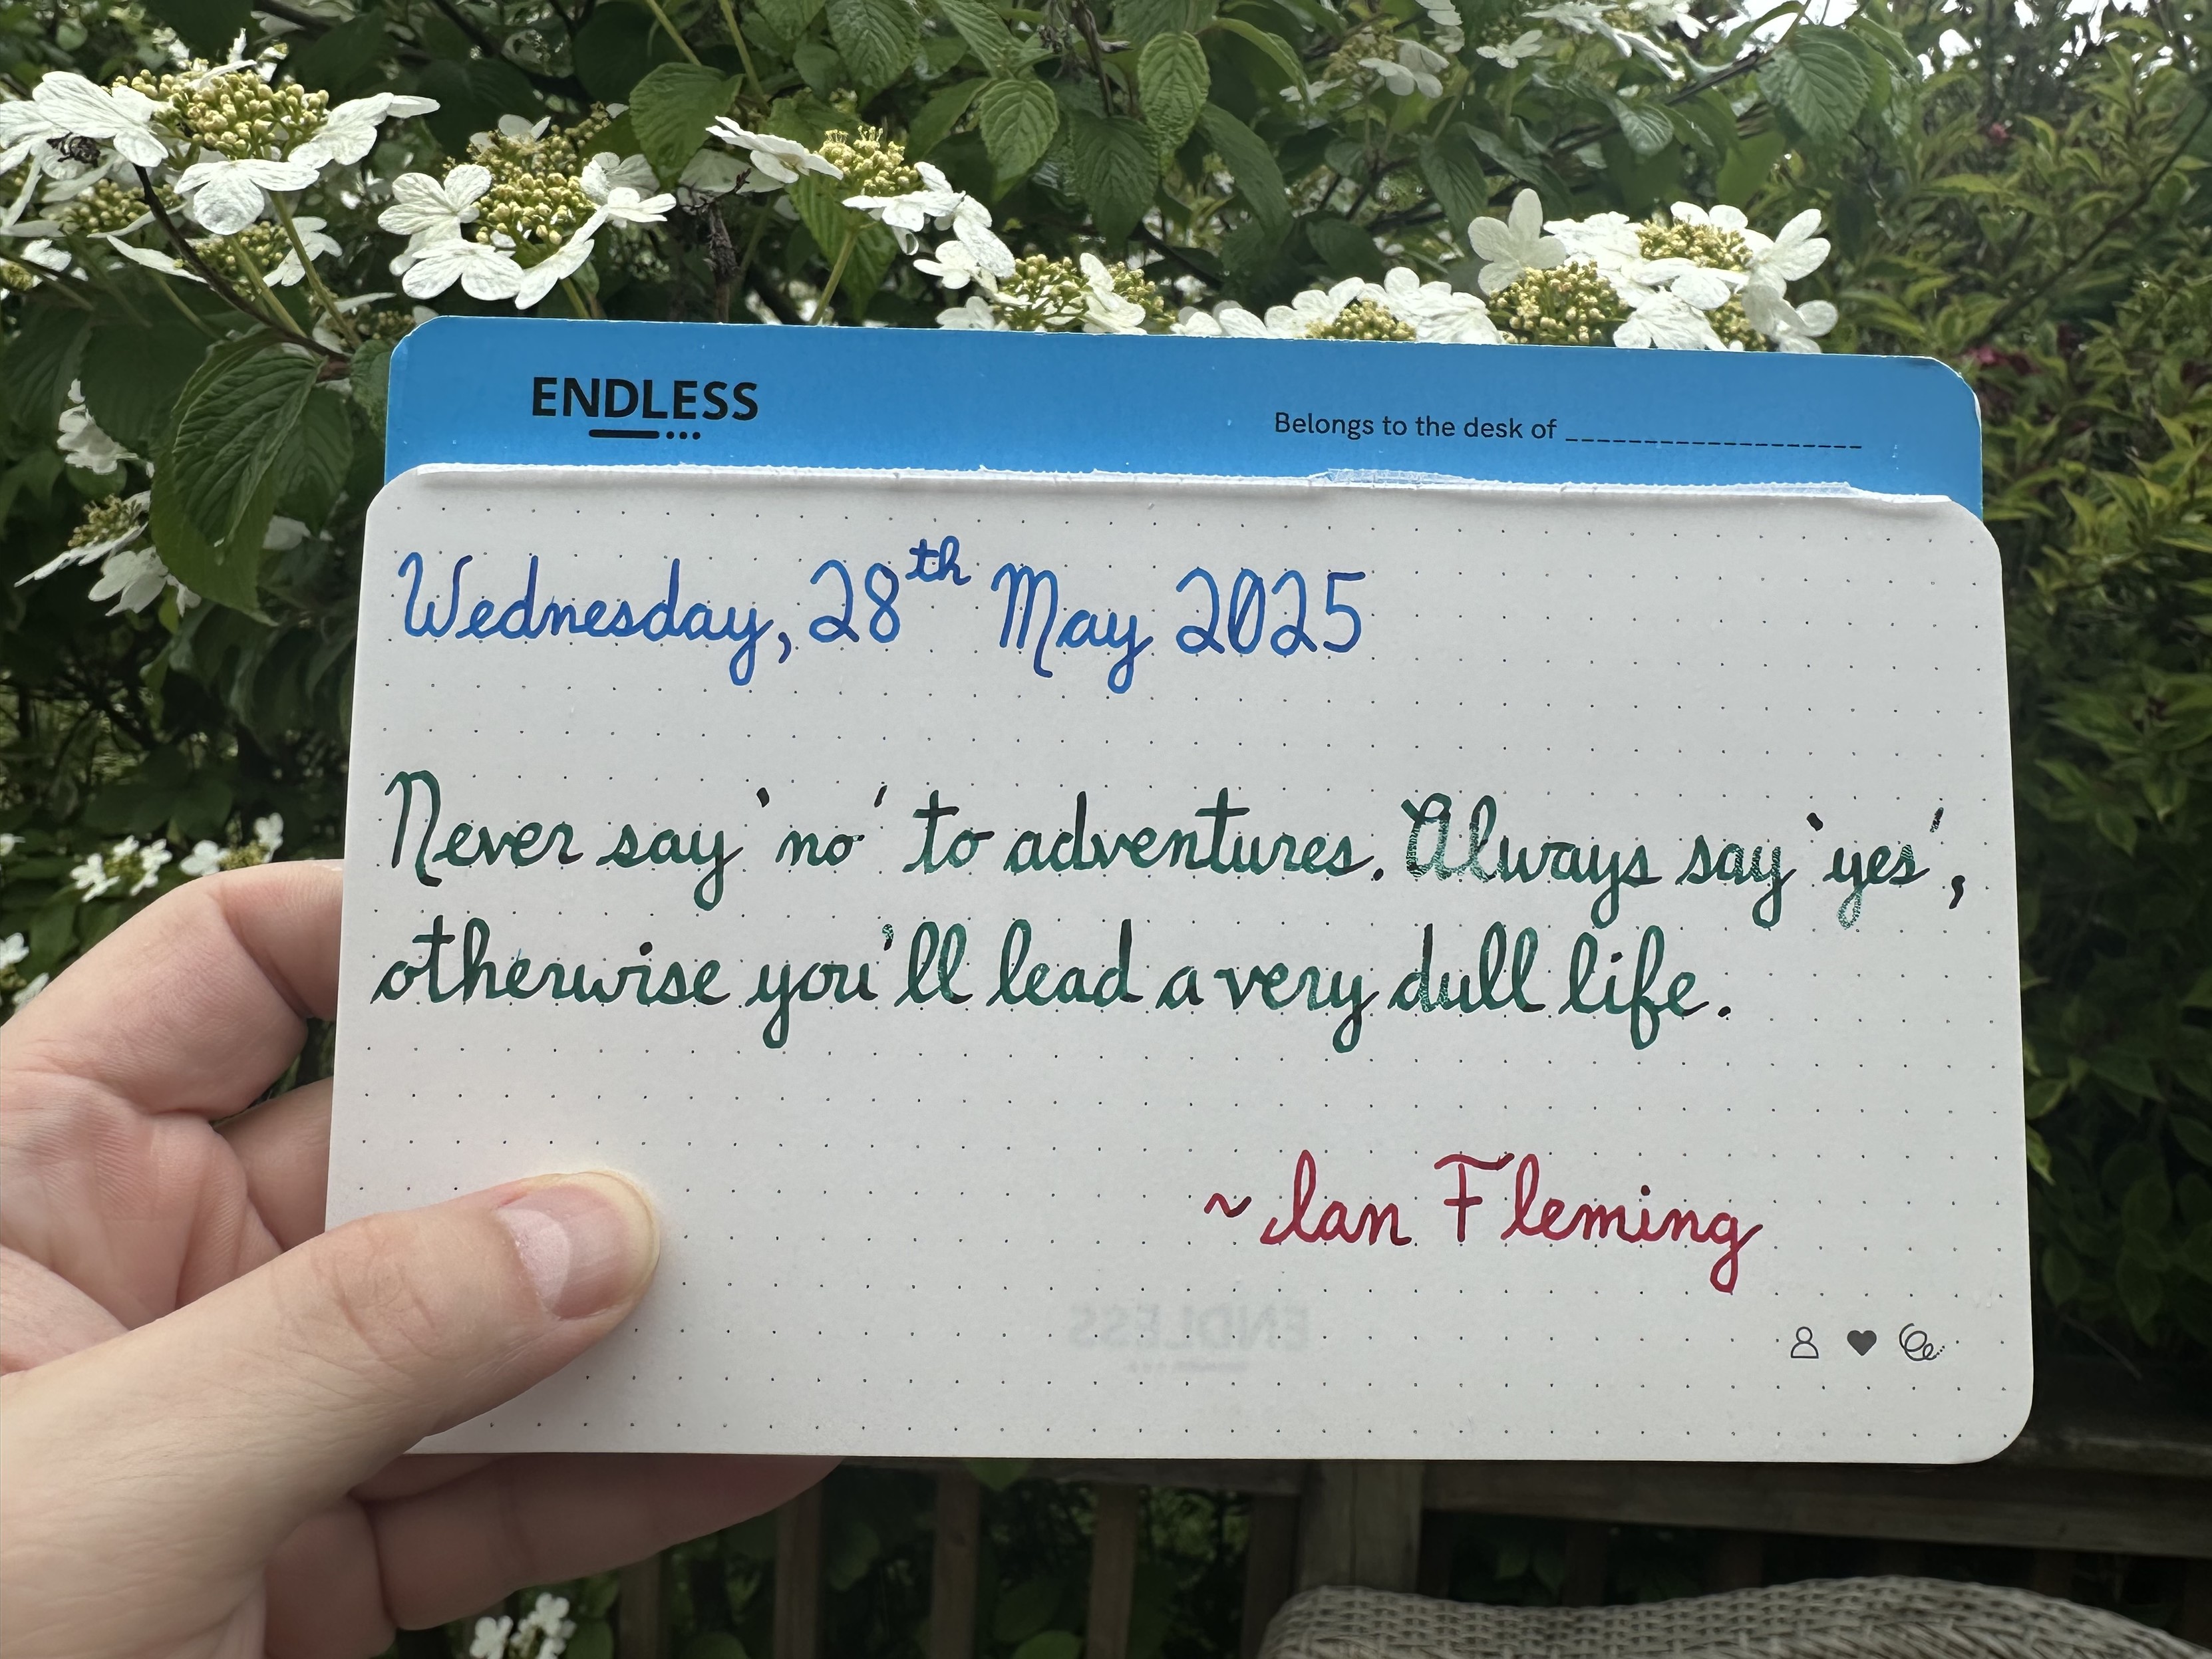 ENDLESS
Belongs to the desk of ___________________
Wednesday, 28th May 2025
Never say 'no' to adventures. Always say 'yes',
otherwise you'll lead a very dull life.
~ Ian Fleming
ENDLESS